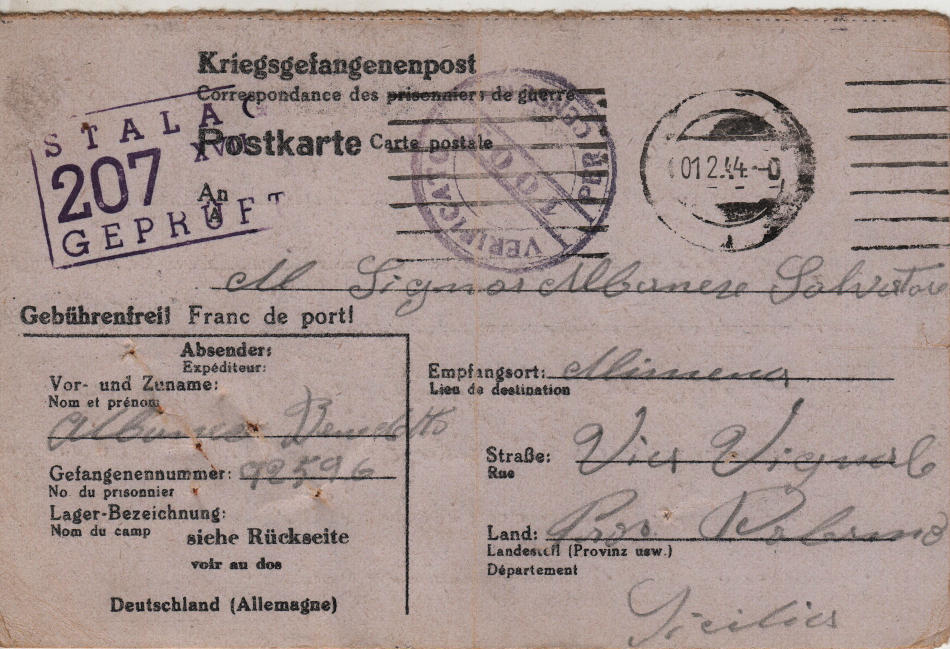 Kriegsgefangenenpost
Correspondance des prisonniers de guerre
STALAG
207
GEPRÜFT
Postkarte Carte postale
VERIFICATO PER CENS
01.2.44.-0
An
A
Al Signor Albanese Salvatore
Gebührenfrei! Franc de port!
Absender:
Expéditeur:
Vor- und Zuname:
Nom et prénom
Albanese Benedetto
Gefangenennummer: 92596
No. du prisonnier
Lager-Bezeichnung:
Nom du camp
siehe Rückseite
voir au dos
Deutschland (Allemagne)
Empfangsort: Alimena
Lieu de destination
Straße: Via
Rue
Land: Pro Palermo
Landesteil (Provinz usw.)
Département
Sicilia